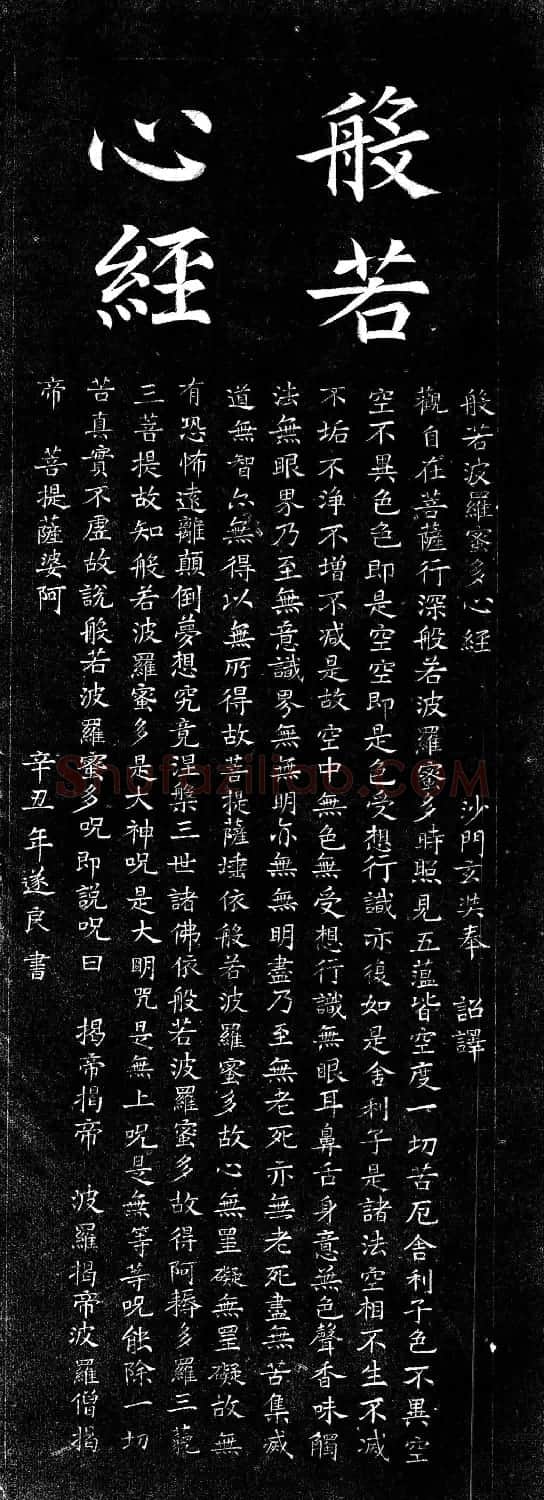 般若
心經
般若波羅蜜多心經 沙門玄奘奉 詔譯
觀自在菩薩行深般若波羅蜜多時照見五蘊皆空度一切苦厄舍利子色不異空
空不異色色即是空空即是色受想行識亦復如是舍利子是諸法空相不生不滅
不垢不淨不增不減是故空中無色無受想行識無眼耳鼻舌身意無色聲香味觸
法無眼界乃至無意識界無無明亦無無明盡乃至無老死亦無老死盡無苦集滅
道無智亦無得以無所得故菩提薩埵依般若波羅蜜多故心無罣礙無罣礙故無
有恐怖遠離顛倒夢想究竟涅槃三世諸佛依般若波羅蜜多故得阿耨多羅三藐
三菩提故知般若波羅蜜多是大神呪是大明咒是無上呪是無等等呪能除一切
苦真實不虛故說般若波羅蜜多呪即說呪曰 揭帝揭帝 波羅揭帝波羅僧揭
帝 菩提薩婆阿 辛丑年遂良書
Shufaziliao.COM